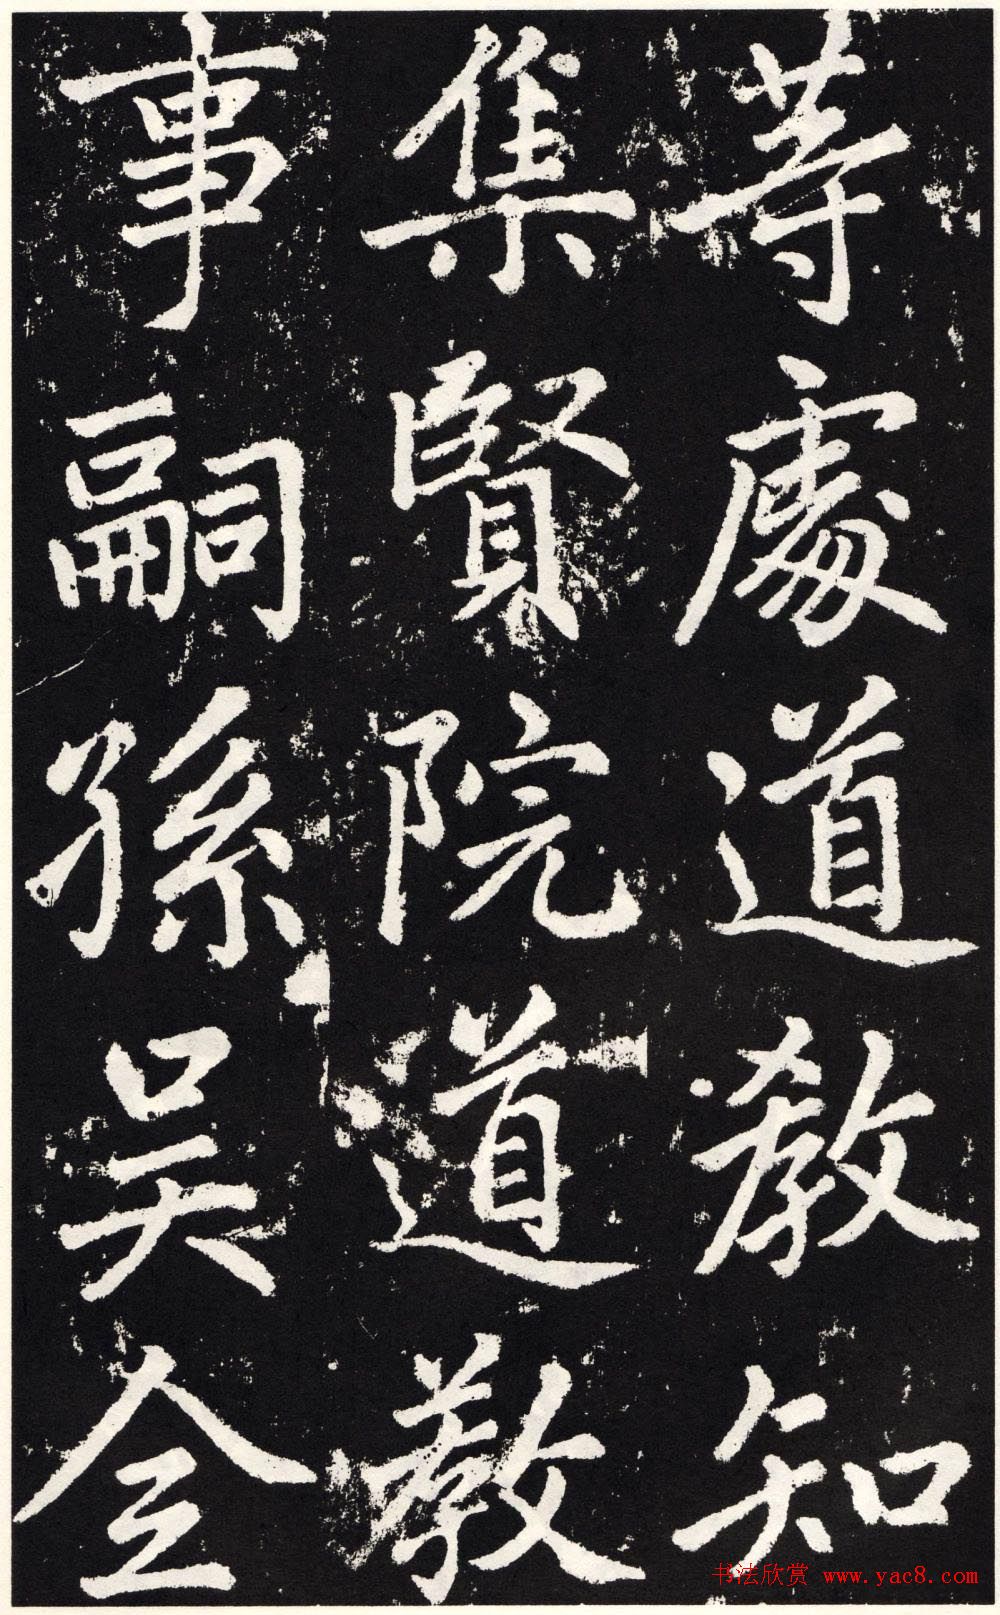 等處道教知
集賢院道教
事嗣孫吳全
书法欣赏 www.yac8.com